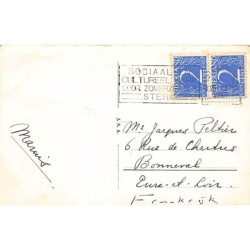 SOCIAAL
CULTUREEL
DOOR ZOMERZ
STER
2
2
Mr Jacques Peltier
6 Rue de Chartres
Bonneval
Eure-et-Loir
Frankrijk
Marius